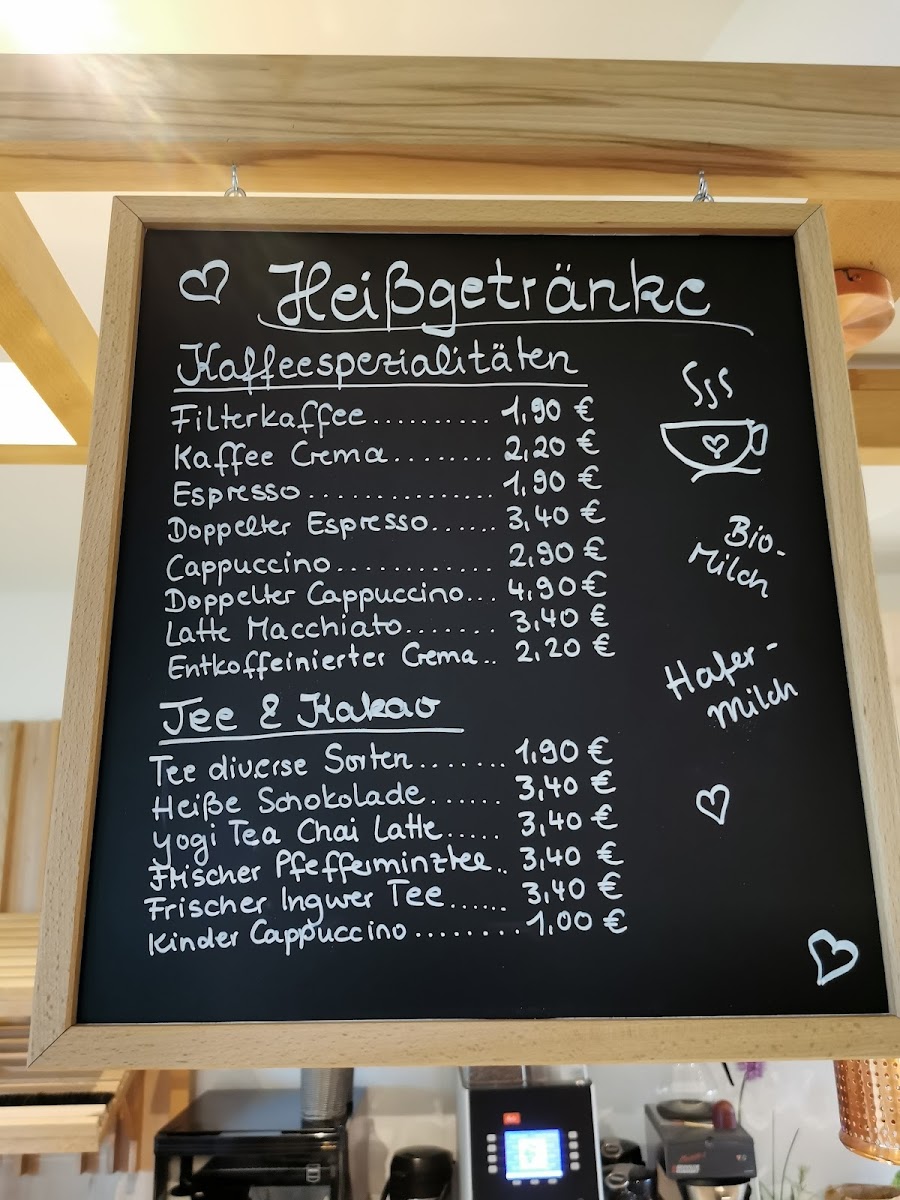 Heißgetränke
Kaffeespezialitäten
Filterkaffee.......... 1,90 €
Kaffee Crema......... 2,20 €
Espresso................ 1,90 €
Doppelter Espresso...... 3,40 €
Cappuccino............. 2,90 €
Doppelter Cappuccino... 4,90 €
Latte Macchiato........ 3,40 €
Entkoffeinierter Crema.. 2,20 €
Tee & Kakao
Tee diverse Sorten........ 1,90 €
Heiße Schokolade...... 3,40 €
Yogi Tea Chai Latte..... 3,40 €
Frischer Pfefferminztee.. 3,40 €
Frischer Ingwer Tee...... 3,40 €
Kinder Cappuccino......... 1,00 €
Bio-
Milch
Hafer-
Milch